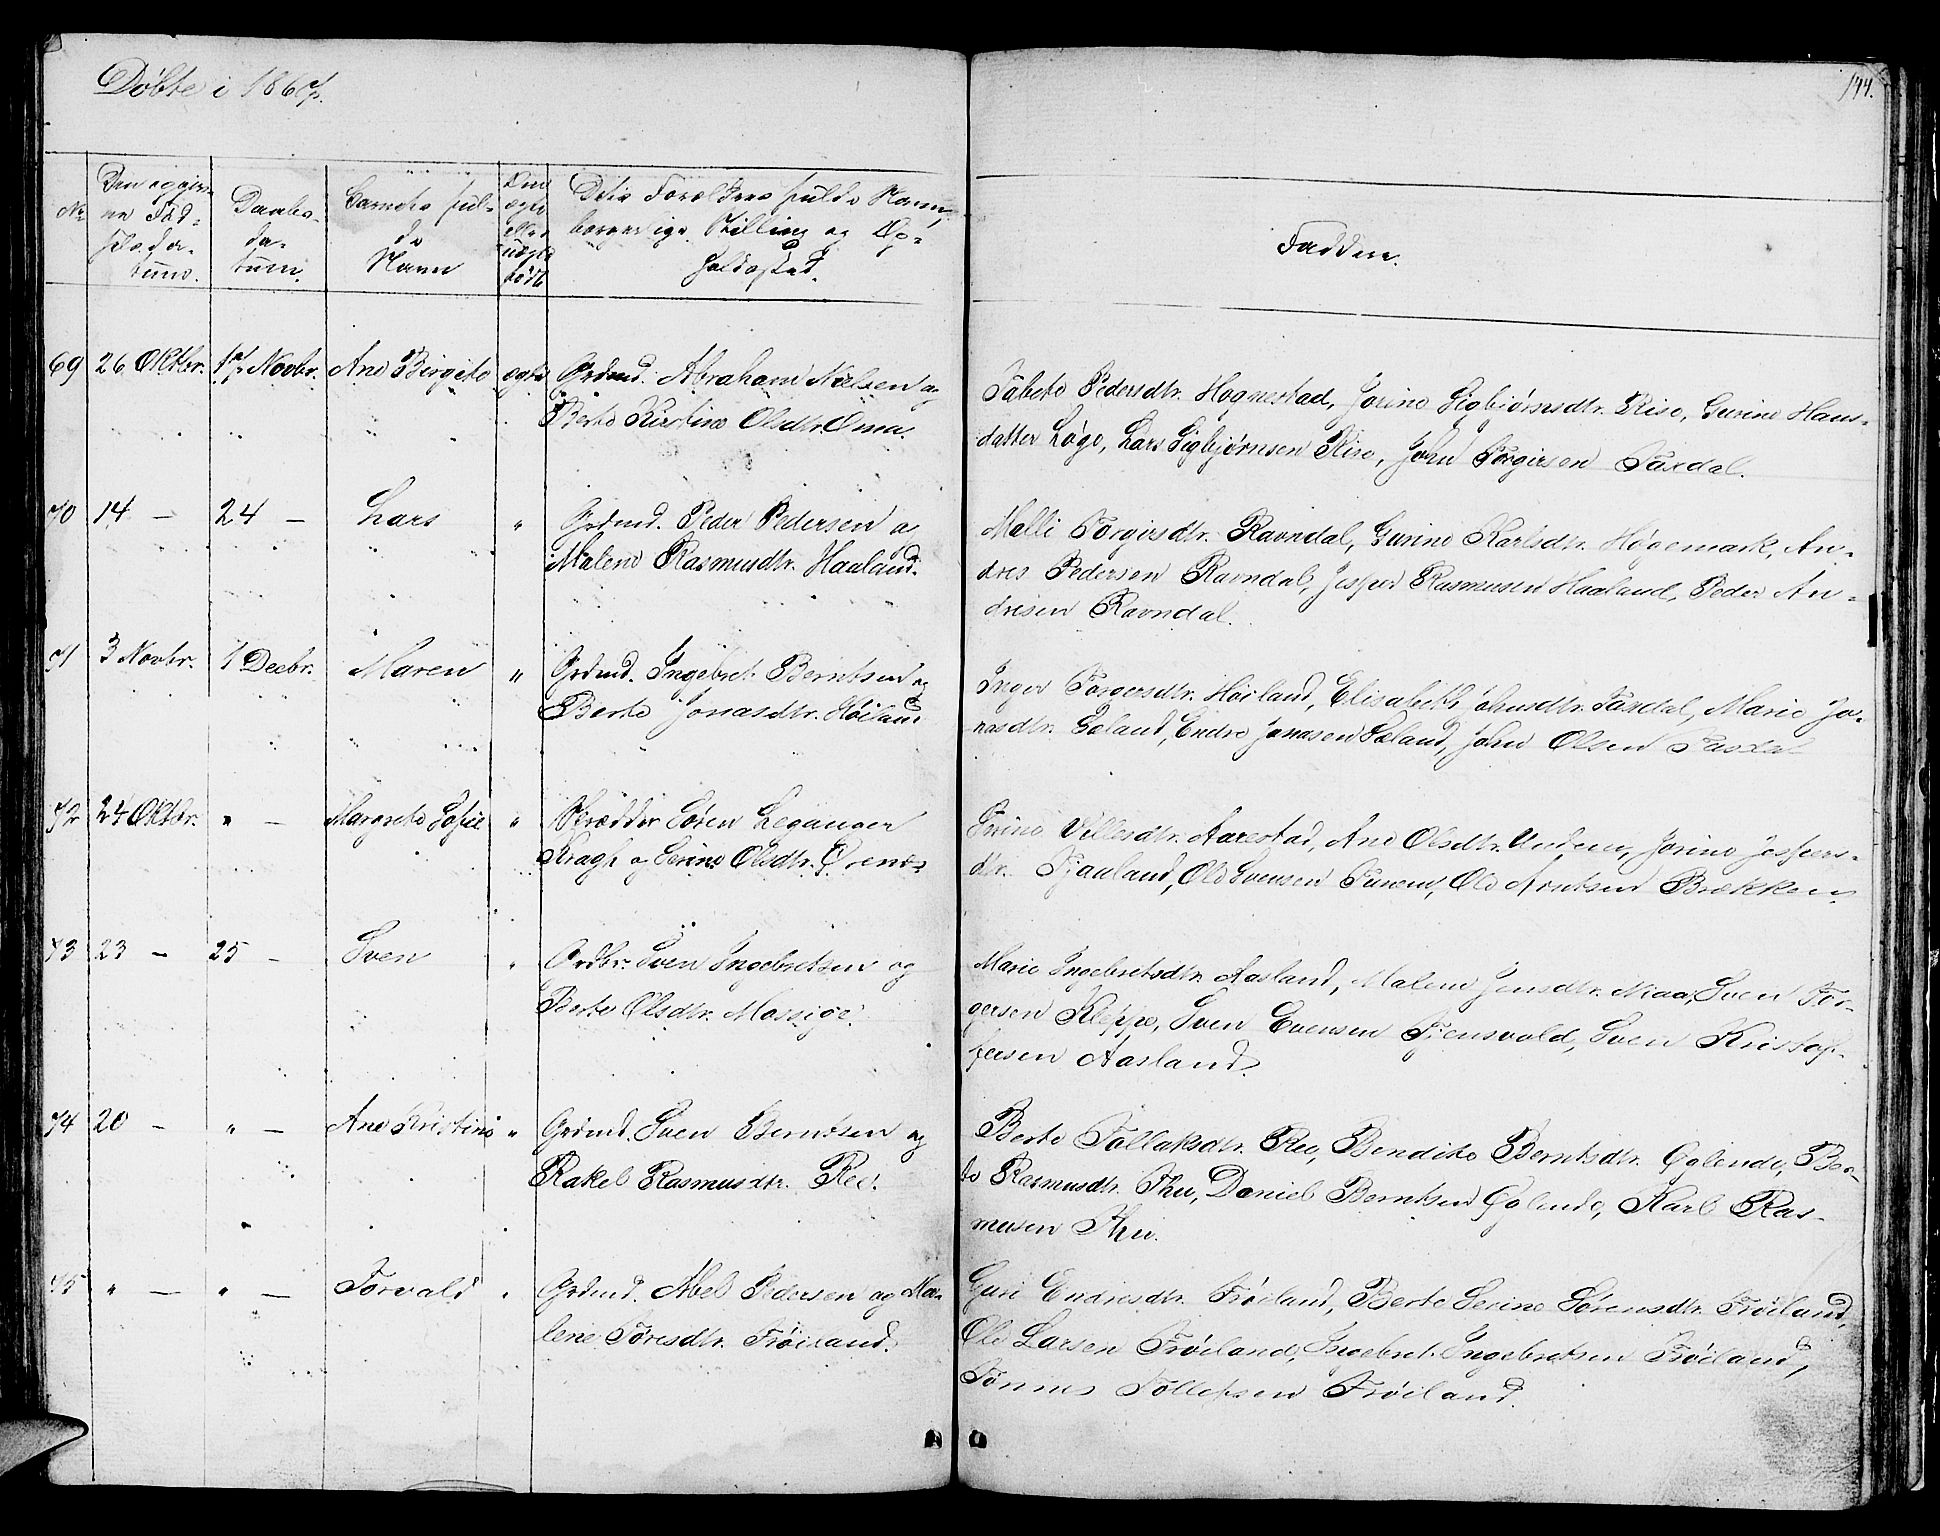 Döbte i 1867.
144.
No
Den opgivne Fødselsdatum.
Daabsdatum.
Barnets fulde Navn
Om ægte eller uægte født
Dets Forældres fulde Navn, borgerlige Stilling og Opholdssted.
Faddere.
69 26 Oktbr. 1ste Novbr. Ane Birgite ægte Grdmd. Abraham Nielsen og
Berte Kirstine Olsdtr. Oma.
Tabete Pedersdtr. Hognestad, Jorine Sigbjørnsdtr. Rise, Gurine Hans-
datter Løge, Lars Sigbjørnsen Rise, John Torgersen Taxdal.
70 14 — 24 — Lars " Grdmd. Peder Pedersen og
Malene Rasmusdtr. Haaland.
Malli Torgersdtr. Ravndal, Gurine Karlsdtr. Høgemark, An-
dres Pedersen Ravndal, Jesper Rasmusen Haaland, Peder An-
dresen Ravndal.
71 3 Novbr. 1 Decbr. Maren " Grdmd. Ingebret Berntsen og
Berte Jonasdtr. Höiland
Inger Torgersdtr. Höiland, Elisabeth Johnsdtr. Taxdal, Marie Jo-
nasdtr. Sæland, Endre Jonassen Sæland, John Olsen Taxdal
72 24 Oktbr. " — Margrete Sofie " Skrædder Sören Leganger
Kragh og Serine Olsdtr. Örena
Serine Villesdtr. Aarestad, Ane Olsdtr. Undem, Jorine Jespers-
dtr. Tjaaland, Ole Svensen Tunem, Ole Arntsen Brekken.
73 23 — 25 — Sven " Grdbr. Sven Ingebretsen og
Berte Olsdtr. Mossige.
Marie Ingebretsdtr. Aasland, Malene Jensdtr. Niaa, Sven Tor-
gersen Kleppe, Sven Evensen Tjensvold, Sven Kristof-
fersen Aasland.
74 20 — " — Ane Kristine " Grdmd. Sven Berntsen og
Rakel Rasmusdtr. Ree.
Berte Tollaksdtr. Ree, Bendite Berntsdtr. Öglende, Ber-
te Rasmusdtr. Thu, Daniel Berntsen Öglende, Karl Ras-
musen Thu.
75 " — " — Torvald " Grdmd. Abel Pedersen og Ma-
lene Töresdtr. Fröiland.
Guri Endresdtr. Fröiland, Berte Serine Sörensdtr. Fröiland,
Ole Larsen Fröiland, Ingebret Ingebretsen Fröiland,
Tönnes Tollefsen Fröiland.